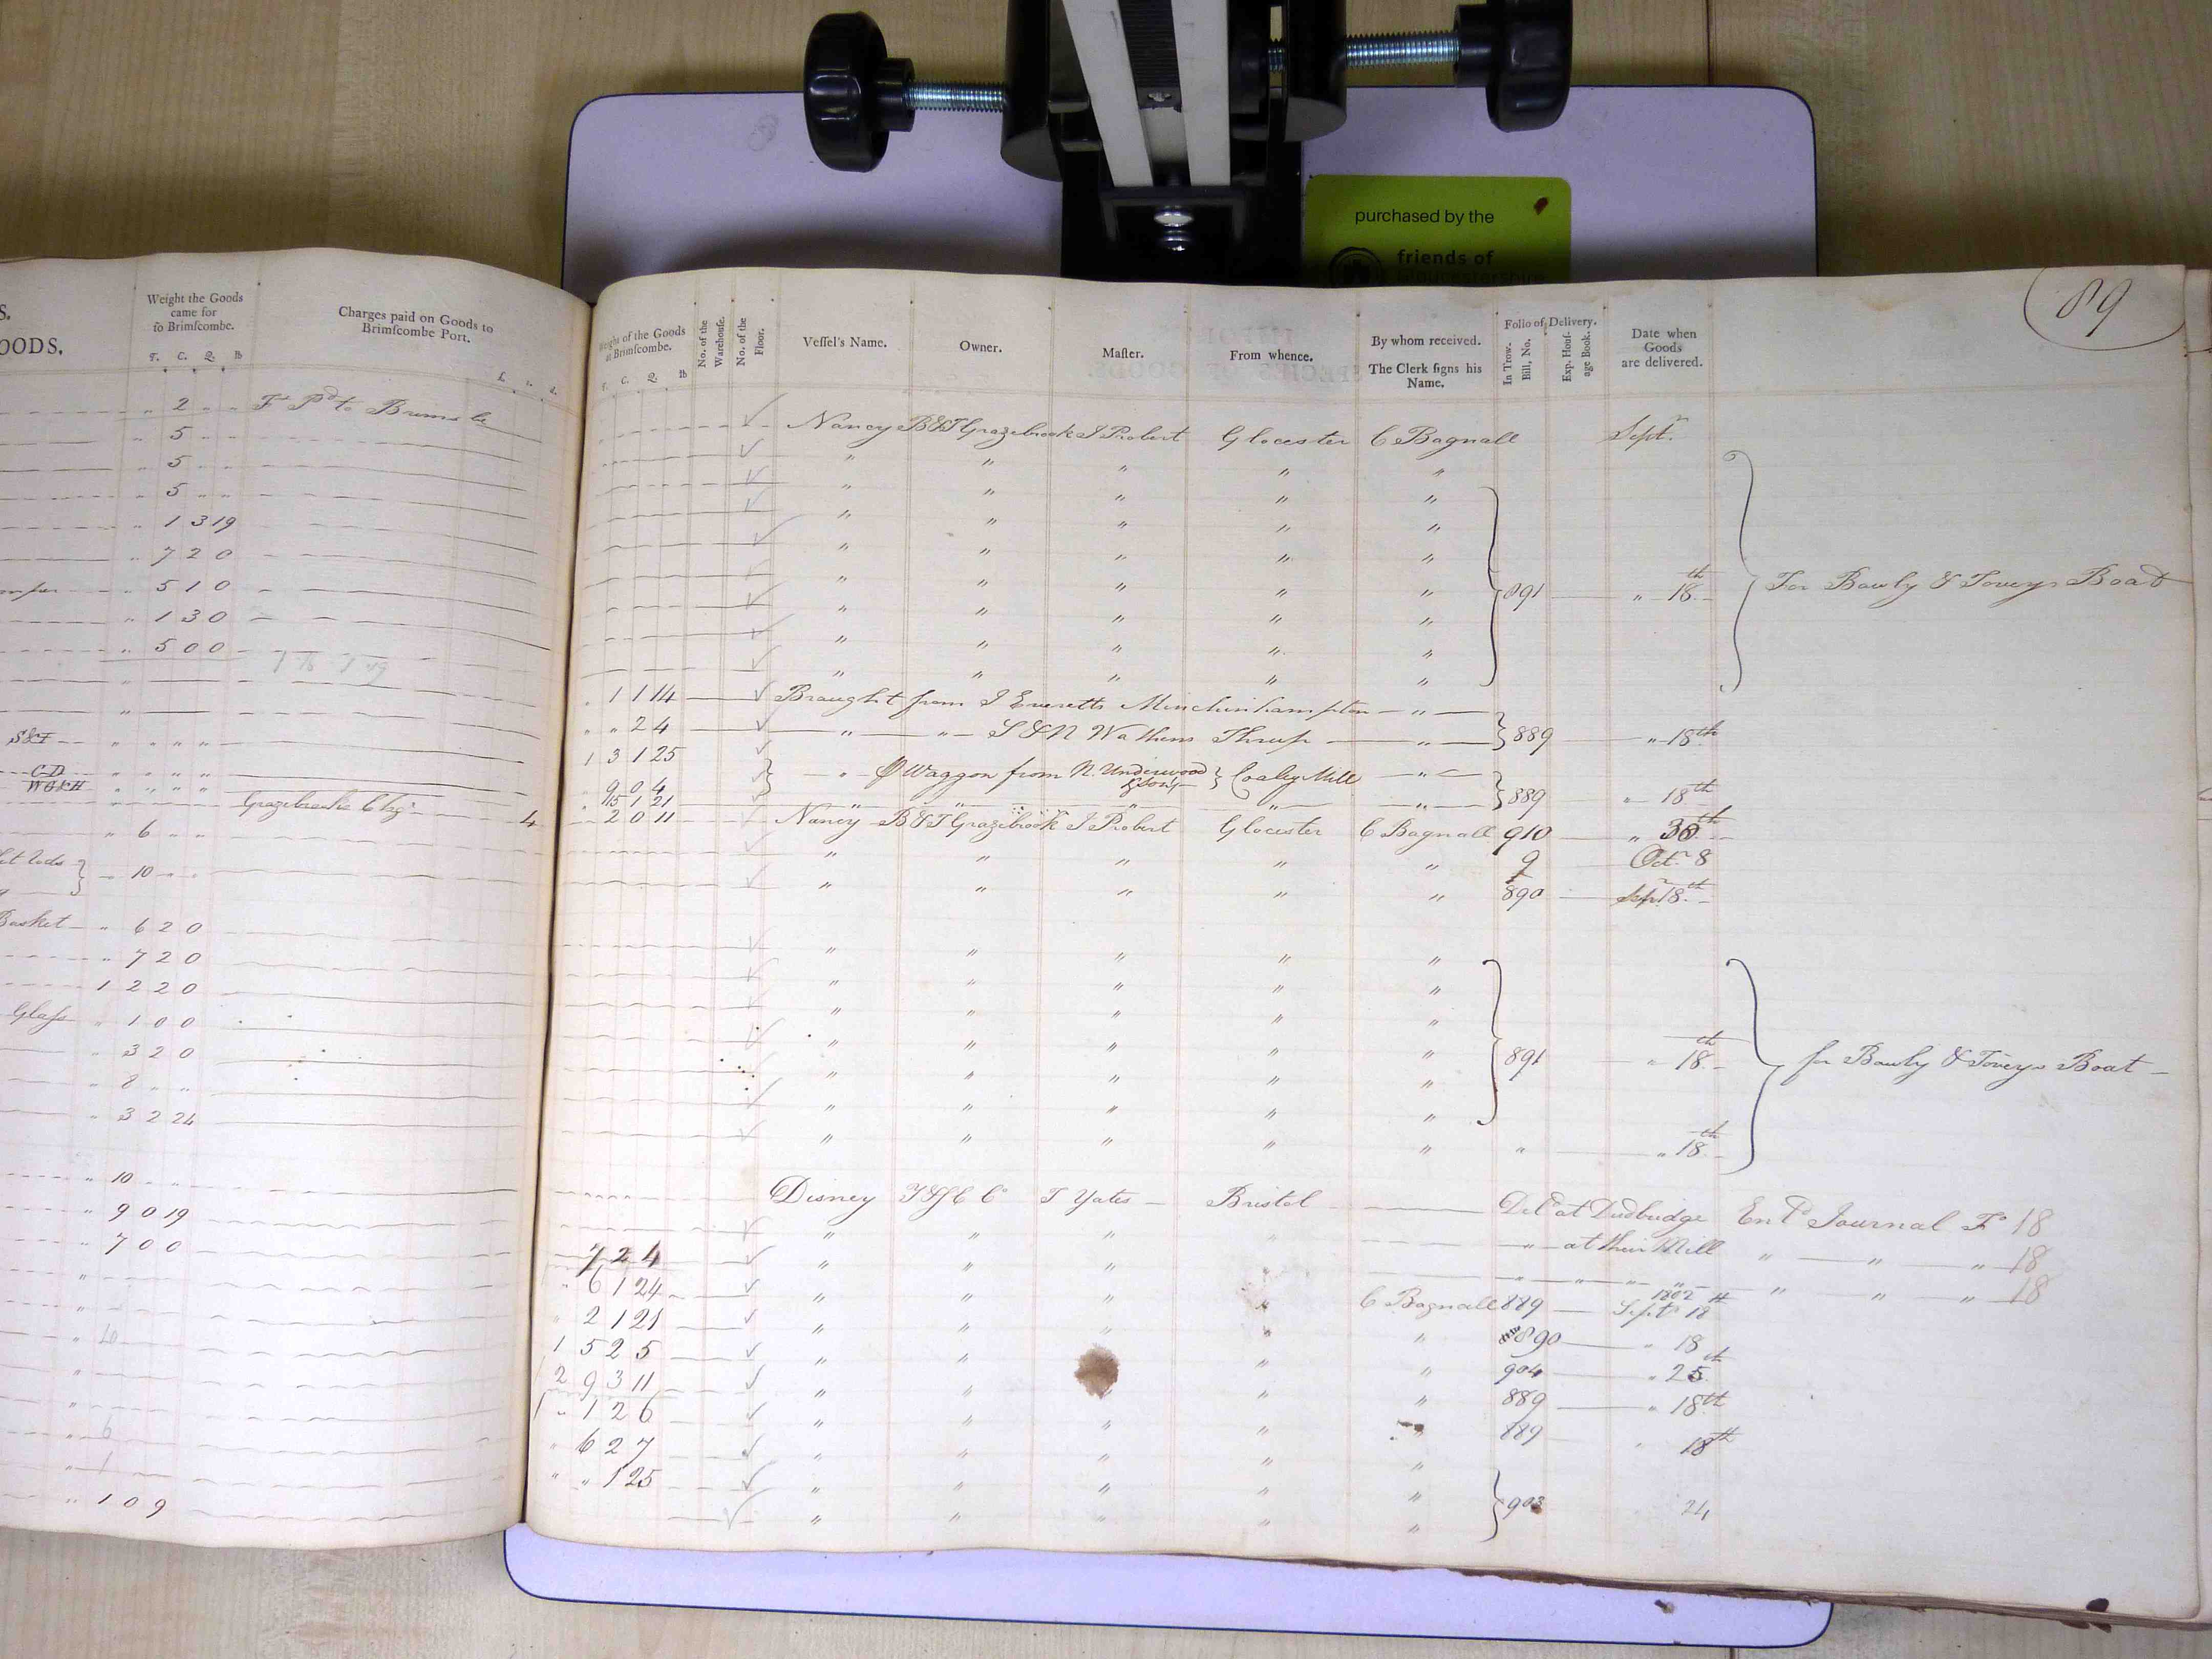 purchased by the
friends of
S.
OODS.
Weight the Goods
came for
to Brimſcombe.
T. C. Q. lb
Charges paid on Goods to
Brimſcombe Port.
£. s. d.
" 2 " " Ft Pd to Brims be
" 5 " "
" 5 " "
" 5 " "
" 1 3 19
" 7 2 0
" 5 1 0
" 1 3 0
" 5 0 0
S&I " " " "
CD " " " "
WG&H " " " "
Grazebrooks Chgs 4
" 6 " "
" 10 " "
Basket " 6 2 0
" 7 2 0
1 2 2 0
Glaſs " 1 0 0
" 3 2 0
" 8 " "
" 3 2 24
" 10 " "
" 9 0 19
" 7 0 0
" 10
" 1 0 9
89
Weight of the Goods
at Brimſcombe.
T. C. Q. lb
No. of the
Warehouſe.
No. of the
Floor.
Veſſel's Name.
Owner.
Maſter.
From whence.
By whom received.
The Clerk ſigns his
Name.
Folio of Delivery.
In Trow.
Bill, No.
Exp. Houſ-
age Book.
Date when
Goods
are delivered.
Nancy B&T Grazebrook I Probert Glocester C Bagnall Septr
" " " " "
" " " " "
" " " " "
" " " " "
" " " " " 891 " 18th For Bawly & Toveys Boat
" " " " "
" " " " "
" " " " "
" 1 1 14 Braught from I Everetts Minchinhampton "
" " 2 4 " " S&N Wathens Thrup " 889 " 18th
1 3 1 25
" 9 0 4 " Waggon from N. Underwood & Sons Coaley Mill "
" 15 1 21 " " " " " " 889 " 18th
" 2 0 11 Nancy B&T Grazebrook I Probert Glocester C Bagnall 910 " 30th
" " " " " 9 Octr 8
" " " " " 890 Sepr 18th
" " " " "
" " " " "
" " " " "
" " " " " 891 " 18th for Bawly & Toveys Boat
" " " " "
" " " " "
" " " " " " " 18th
Disney T Yates Bristol Deld at Dudbridge Entd Journal Fo 18
" " " " " at their Mill " " " 18
7 2 4 " " " " " " " " " " " 18
" 6 1 24 " " " " C Bagnall 889 1802 Septr 18
" 2 1 21 " " " " " 890 " 18
1 5 2 5 " " " " 904 " 25th
2 9 3 11 " " " " " 889 " 18th
" 1 2 6 " " " " " 889 " 18th
" 6 2 7 " " " " "
" " 1 25 " " " " " 903 24
" " " " "